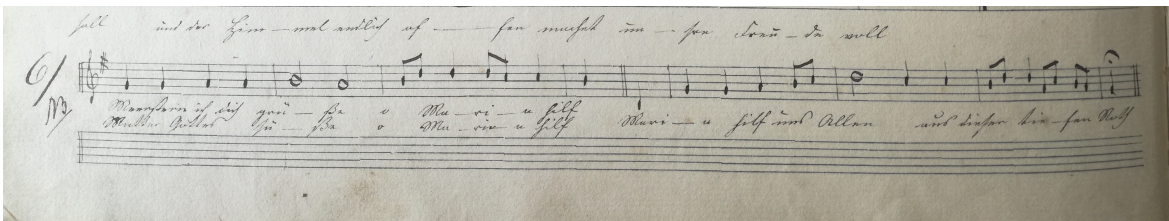 soll und der Him – mel endlich of – – – fen machet un – sre Freu – de voll
6/
Meerstern ich dich grü – ße o Ma – ri – a hilf
Mutter Gottes sü – ße o Ma – ria – a hilf Mari – a hilf uns Allen aus dieser tie – fen Noth